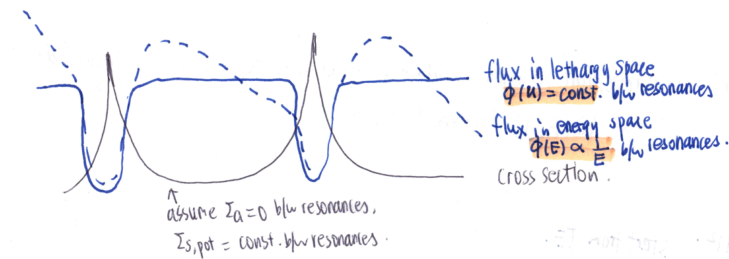 flux in lethargy space
φ(u) = const. b/w resonances
flux in energy space
φ(E) ∝ 1/E b/w resonances.
cross section.
assume Σa=0 b/w resonances,
Σs,pot = const. b/w resonances.